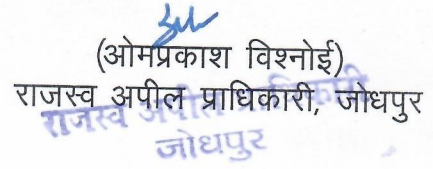 (ओमप्रकाश विश्नोई)
राजस्व अपील प्राधिकारी, जोधपुर
राजस्व अपील प्राधिकारी
जोधपुर